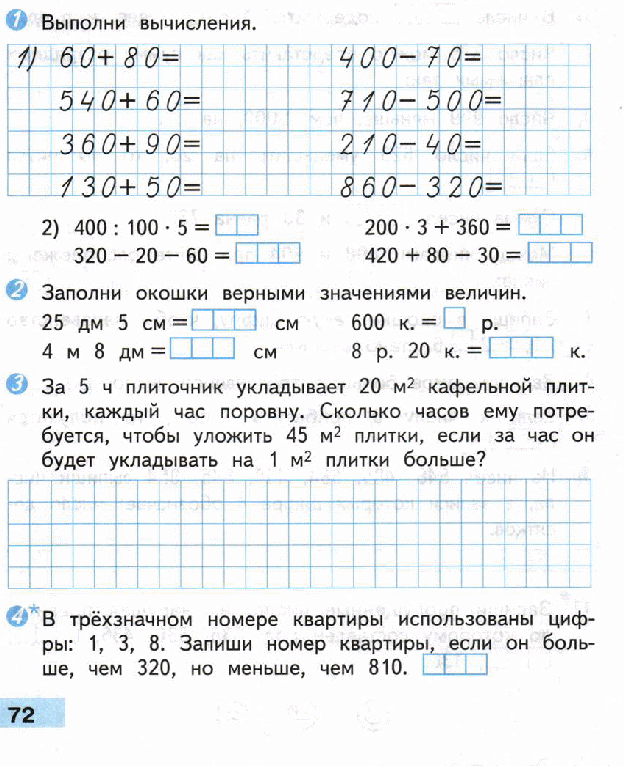 1 Выполни вычисления.
1) 60+80= 400-70=
540+60= 710-500=
360+90= 210-40=
130+50= 860-320=
2) 400 : 100 · 5 = 200 · 3 + 360 =
320 - 20 - 60 = 420 + 80 - 30 =
2 Заполни окошки верными значениями величин.
25 дм 5 см = см 600 к. = р.
4 м 8 дм = см 8 р. 20 к. = к.
3 За 5 ч плиточник укладывает 20 м² кафельной плит-
ки, каждый час поровну. Сколько часов ему потре-
буется, чтобы уложить 45 м² плитки, если за час он
будет укладывать на 1 м² плитки больше?
4* В трёхзначном номере квартиры использованы циф-
ры: 1, 3, 8. Запиши номер квартиры, если он боль-
ше, чем 320, но меньше, чем 810.
72